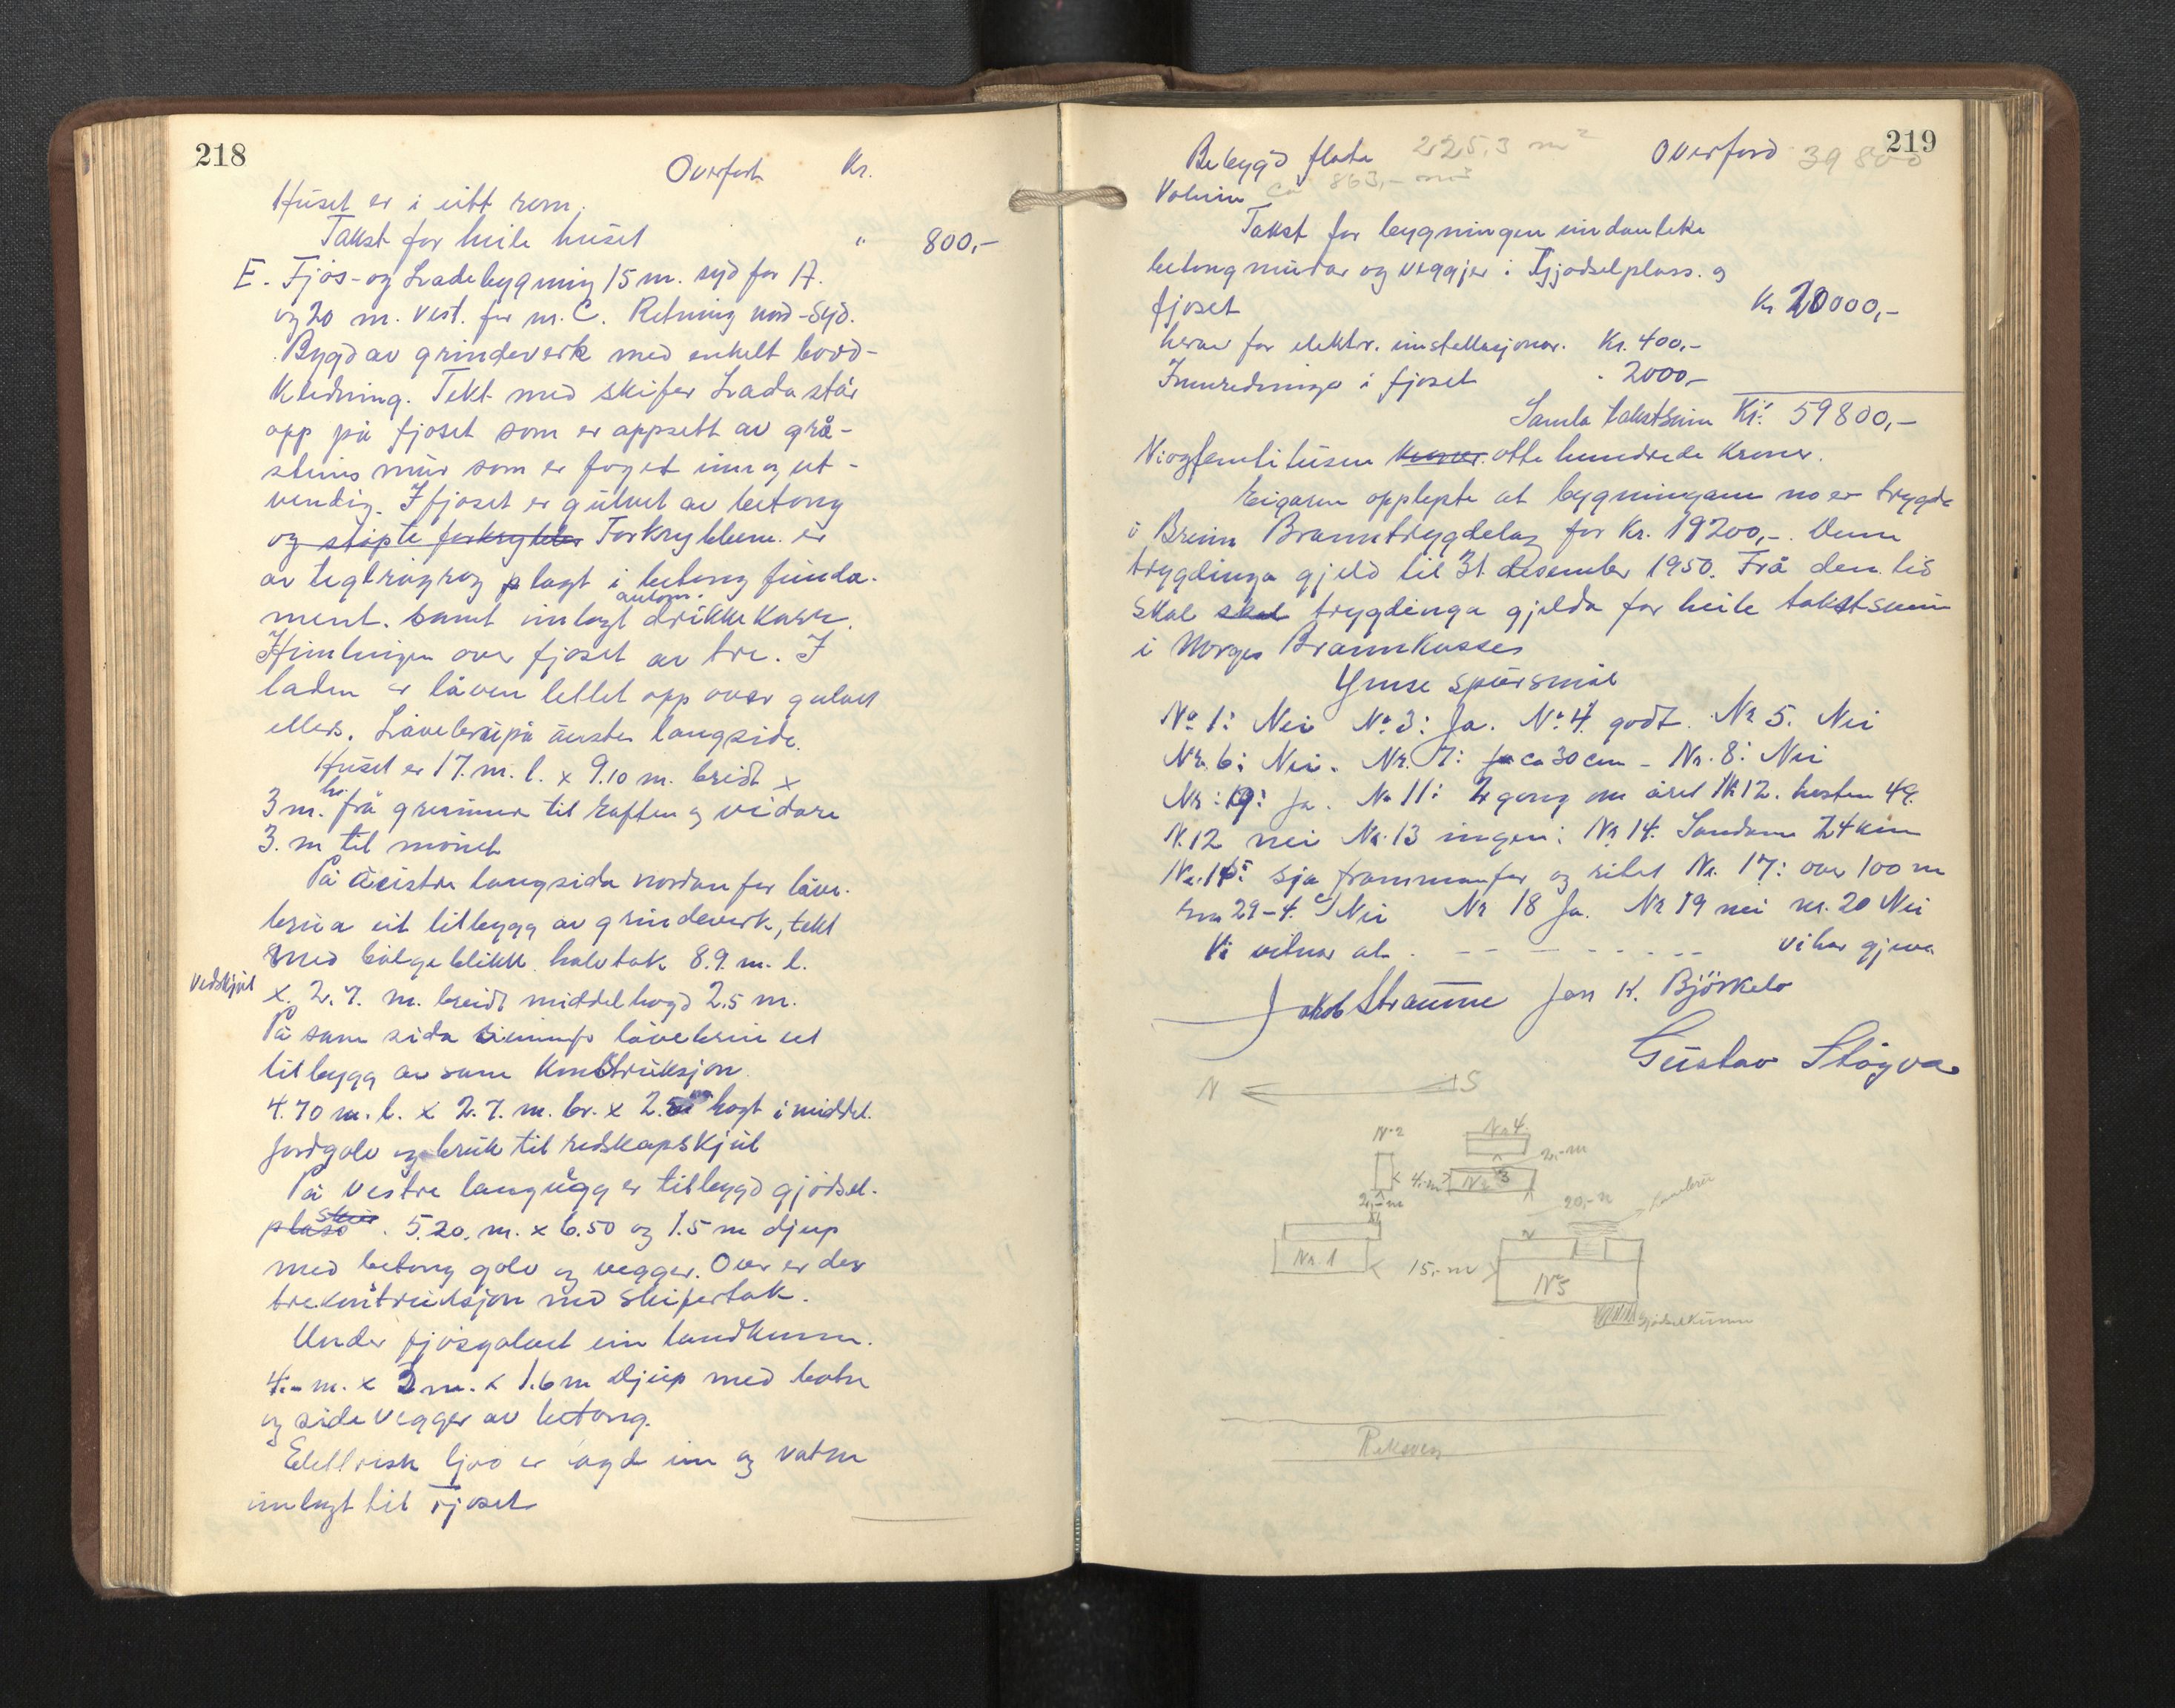 218
Overført Kr.
Huset er i eitt rom.
Takst for heile huset " 800,-
E. Fjøs- og Ladebygning 15 m. syd for A.
og 20 m. vest. for nr. C. Retning nord-Syd.
Bygd av grindeverk med enkelt bord-
kledning. Tekt med skifer Lada står
opp på fjoset som er oppsett av grå-
steins mur som er foget inn og ut-
vendig. I fjoset er gulvet av betong
og støpte forkrybber Forkrybbene er
avteglrøyr og lagt i betong funda-
ment. samt innlagt autom. drikkekarr.
Himlingen over fjoset av tre. I
laden er låven lettet opp over gulvet
ellers. Låvebru på austre langside.
Huset er 17. m. l. x 9.10 m. breidt x
3 m. hø. frå grunnur til raften og vidare
3. m til mønet
På austre langsida nordanfor låve-
brua eit tilbygg av grindeverk, tekt
med bølgeblikk halvtak 8.9. m. l.
Vedskjul x. 2.7. m. breidt middelhøgd 2.5 m.
På same sida sunnafo låvebrui eit
tilbygg av same konstruksjon.
4.70 m. l. x 2.7. m. br. x 2.5 m høgt i middel.
Jordgolv og bruk til redskapskjul
På vestre langvegg er tilbygd gjødsel-
plass. 5.20. m. x 6.50 og 1.5 m djup
med betong golv og vegger. Over er der
trekonstruksjon med skifertak.
Under fjøsgolvet ein landkumme.
4.- m. x 3 m. x 1.6 m djup med botn
og sidevegger av betong.
Elektrisk ljos er lagd inn og vatn
innlagt til Fjøset
219
Bebygd flate 225,3 m² Overførd 39800
Volum ca 863,- m³
Takst for bygningen undanteke
betong mudar og veggjer i Gjødselplass. og
fjøset Kr 20000,-
herav for elektr. installasjonar. Kr. 400,-
Innredninga i fjøset - 2000,-
Samla takstsum Kr: 59800,-
Niogfemtitusen kroner otte hundrede Kroner.
Eigaren opplyste at bygningane no er trygda
i Breim Branntrygdelag for Kr. 19200,-. Denne
trygdinga gjeld til 31. desember 1950. Frå den tid
skal skal trygdinga gjelda for heile takstsum
i Norges Brannkasse
Ymse spursmål
Nº 1: Nei Nº 3: Ja. Nº 4 godt. Nr 5. Nei
Nr. 6: Nei. Nr. 7: Ja ca 30 cm - Nr. 8: Nei
Nr: 19: Ja. Nr 11: 2 gong om året Nr 12. hosten 49.
N. 12 nei Nr. 13 ingen: Nr 14. Sandane 24 km
Nr. 15: sjå frammanfor og riket Nr. 17: over 100 m
29-4. c/ Nei Nr 18 Ja. Nr 19 nei nr. 20 Nei
Vi vitnar at - - - - - - - vi har gjeva
Jakob Straume Jon K. Bjørkelo
Gustav Støyva
N S
Nr 2 Nr. 4
2,- m
4,- m Nr 3
2,- m 20,- m
Nr. 1 15,- m Nr 5
Gjødselkumme
Riksveg